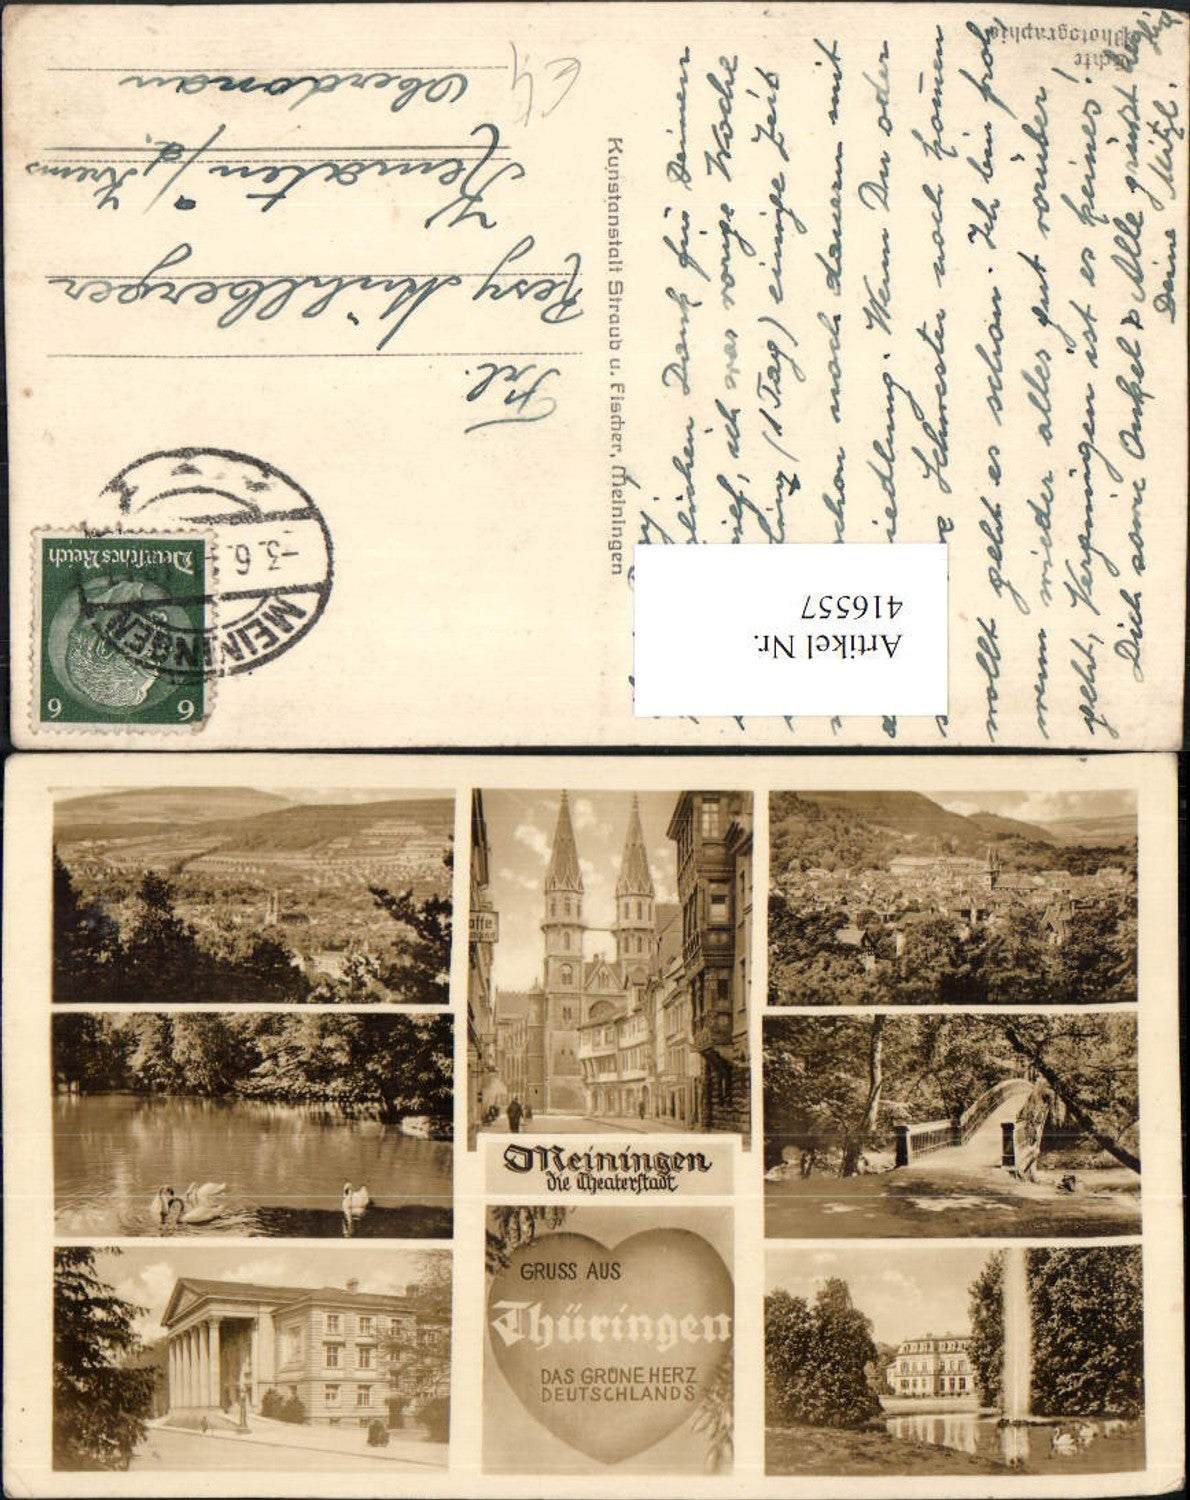 Echte
Photographie
Dank für Deinen
ich war vorige Woche
(1 Tag) einige Zeit
schon noch dauern mit
Siedlung. Wenn Du oder
Schwester noch kommen
wollt geht es schon. Ich bin froh
wenn wieder alles gut vorüber
geht, Vergnügen ist es keines!
Dich sowie Onkel & Alle grüßt
Deine Mitzl.
Kunstanstalt Straub u. Fischer, Meiningen
Deutsches Reich
6
6
MEININGEN
-3.6.
Frl.
Resy Mühlberger
Kematen a/d. Krems
Oberdonau
Artikel Nr.
416557
Meiningen
die Theaterstadt
GRUSS AUS
Thüringen
DAS GRÜNE HERZ
DEUTSCHLANDS